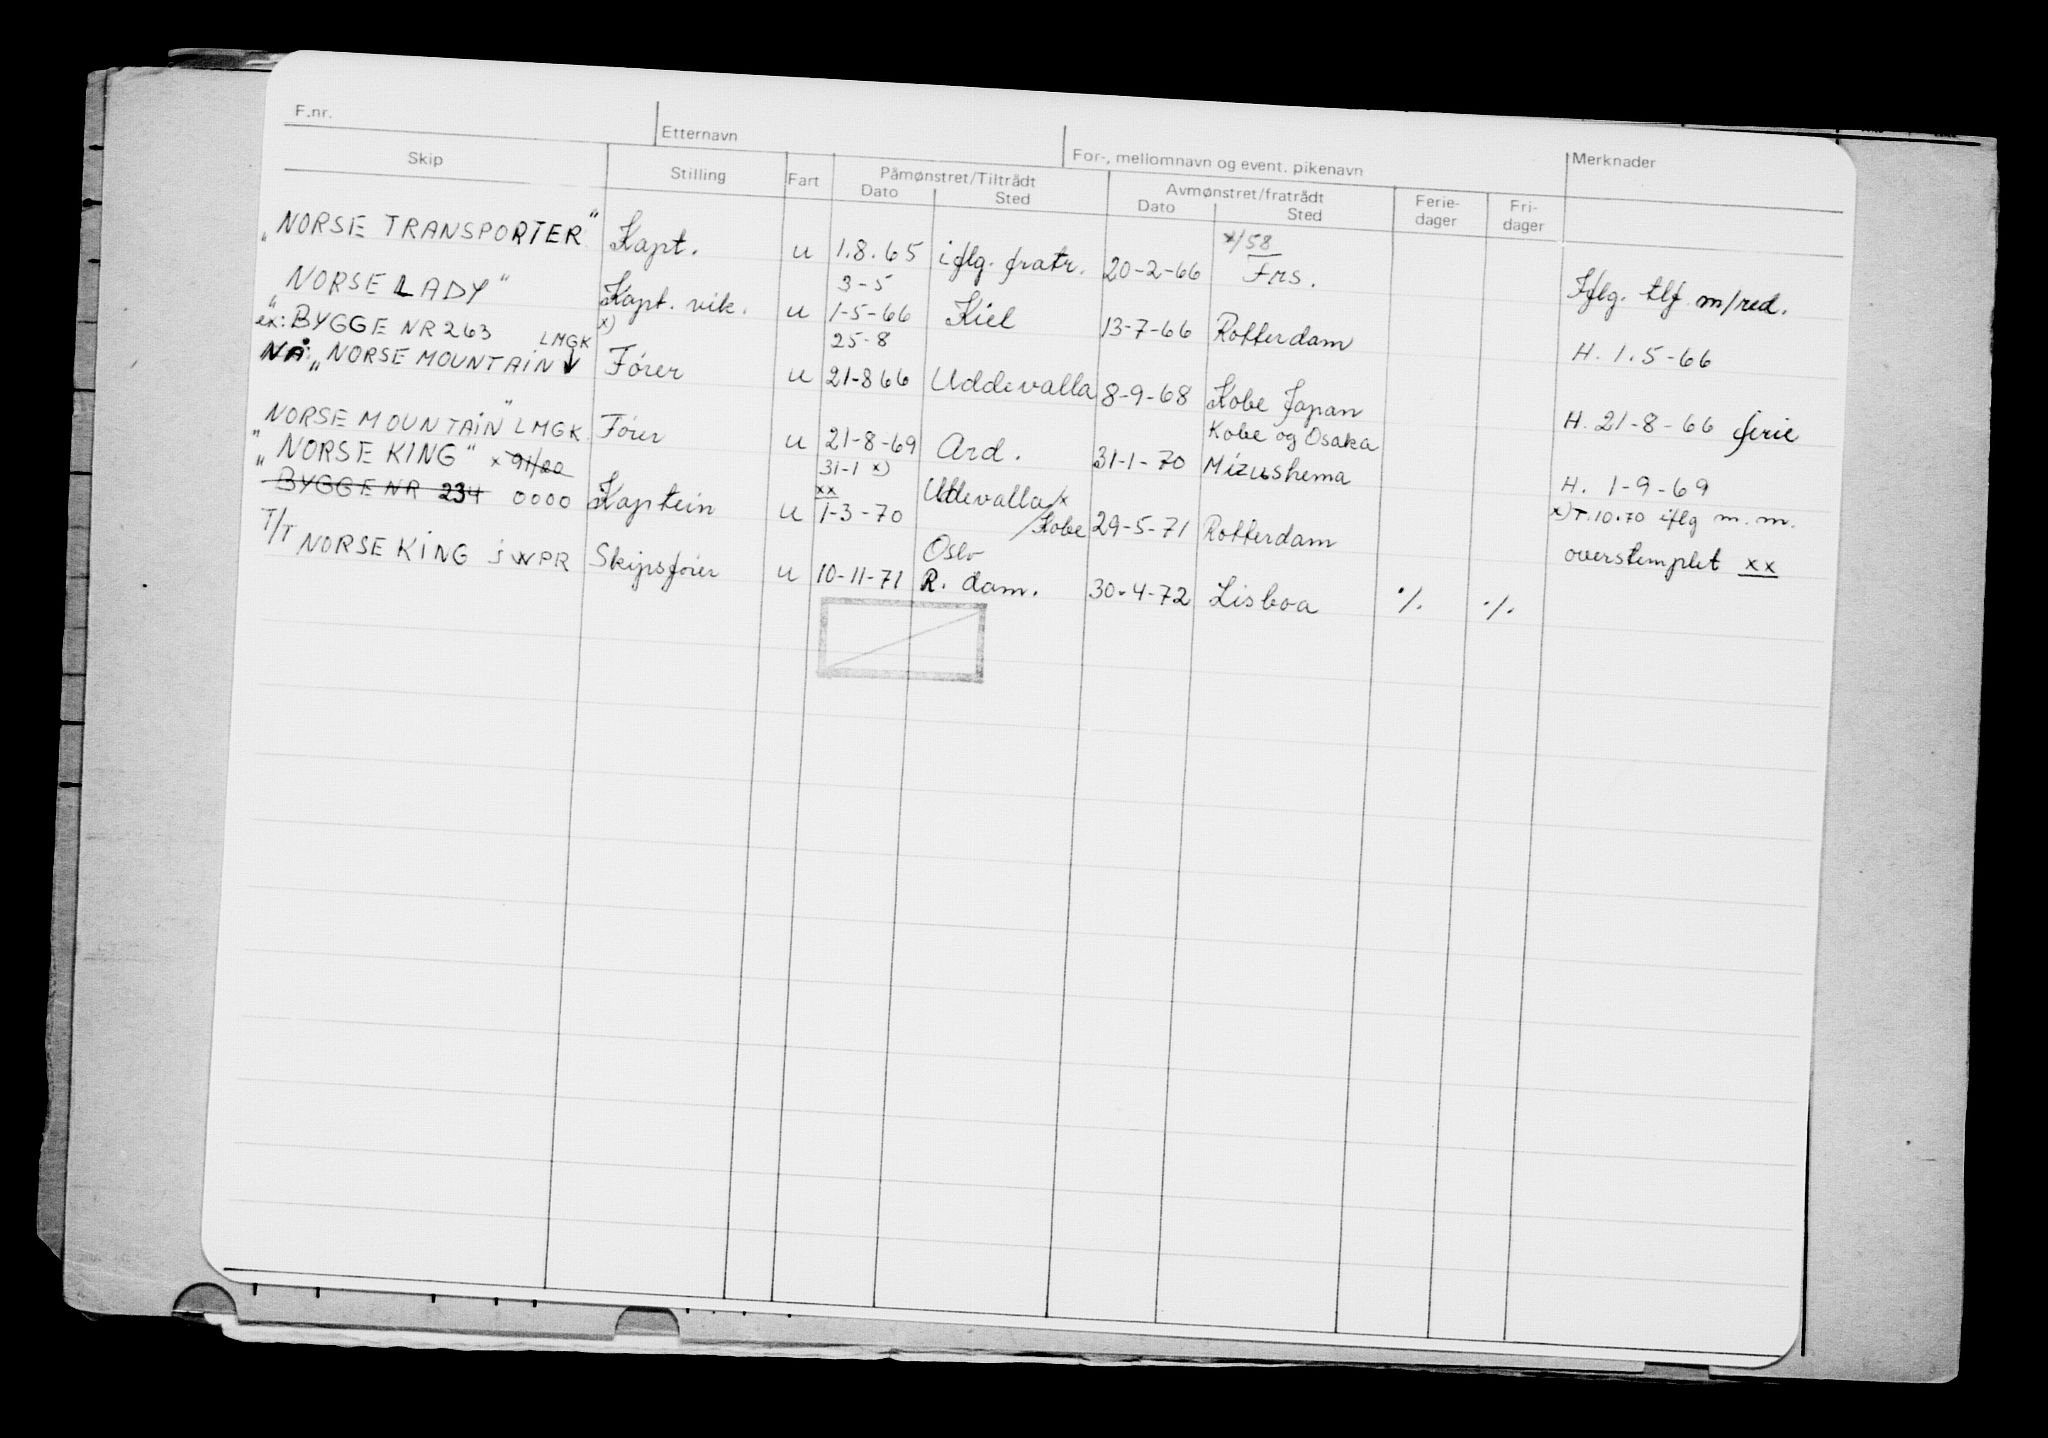 F.nr. Etternavn For-, mellomnavn og event. pikenavn Merknader
Skip Stilling Fart Påmønstret/Tiltrådt Avmønstret/fratrådt Ferie-dager Fri-dager
Dato Sted Dato Sted
/58
"NORSE TRANSPORTER" Kapt. u 1.8.65 iflg. fratr. 20-2-66 Frs. Iflg. tlf m/red.
3-5
"NORSE LADY" Kapt. vik. u 1-5-66 Kiel 13-7-66 Rotterdam H. 1.5-66
ex: BYGGE NR 263 LMGK x) 25-8
NÅ: "NORSE MOUNTAIN Fører u 21-8 66 Uddevalla 8-9-68 Kobe Japan H. 21-8-66 ferie
Kobe og Osaka
NORSE MOUNTAIN" LMGK Fører u 21-8-69 Ard. 31-1-70 Mizushema H. 1-9-69
"NORSE KING" x 91/00 31-1 x) Uddevalla x x) T.10.70 iflg m.m.
xx
BYGGE NR 234 0000 Kaptein u 1-3-70 /Kobe 29-5-71 Rotterdam overstemplet xx
Oslo
T/T NORSE KING JWPR Skipsfører u 10-11-71 R.dam. 30.4-72 Lisboa ./. ./.